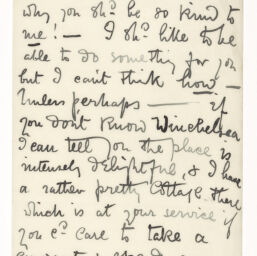 why you shd. be so kind to
me! — I shd. like to be
able to do something for you
but I can't think how —
Unless perhaps — if
you don't know Winchelsea
I can tell you the place is
intensely delightful, & I have
a rather pretty cottage there
which is at your service if
you cd. care to take a